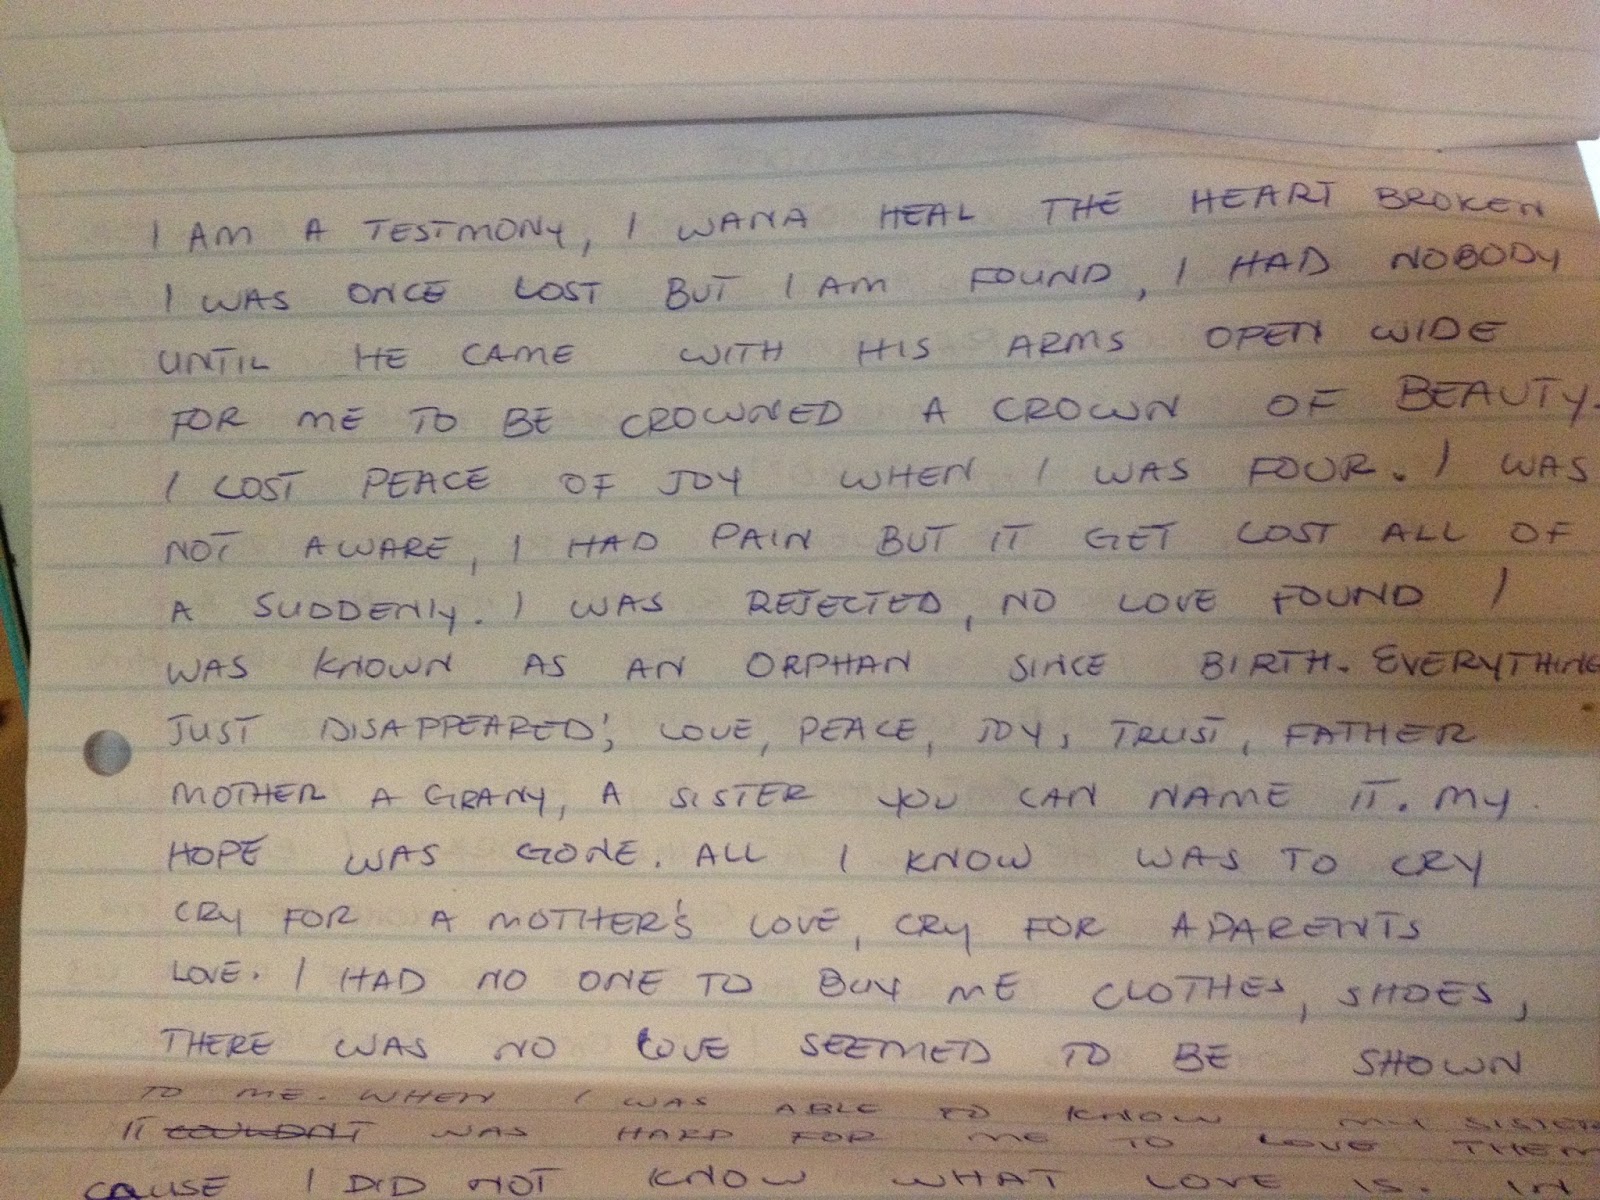 I AM A TESTMONY, I WANA HEAL THE HEART BROKEN
I WAS ONCE LOST BUT I AM FOUND, I HAD NOBODY
UNTIL HE CAME WITH HIS ARMS OPEN WIDE
FOR ME TO BE CROWNED A CROWN OF BEAUTY.
I LOST PEACE OF JOY WHEN I WAS FOUR. I WAS
NOT AWARE, I HAD PAIN BUT IT GET LOST ALL OF
A SUDDENLY. I WAS REJECTED, NO LOVE FOUND I
WAS KNOWN AS AN ORPHAN SINCE BIRTH. EVERYTHING
JUST DISAPPEARED; LOVE, PEACE, JOY, TRUST, FATHER
MOTHER A GRANY, A SISTER YOU CAN NAME IT. MY
HOPE WAS GONE. ALL I KNOW WAS TO CRY
CRY FOR A MOTHER'S LOVE, CRY FOR A PARENTS
LOVE. I HAD NO ONE TO BUY ME CLOTHES, SHOES,
THERE WAS NO LOVE SEEMED TO BE SHOWN
TO ME. WHEN I WAS ABLE TO KNOW MY SISTER
IT COULDNT WAS HARD FOR ME TO LOVE THEM
CAUSE I DID NOT KNOW WHAT LOVE IS. IN